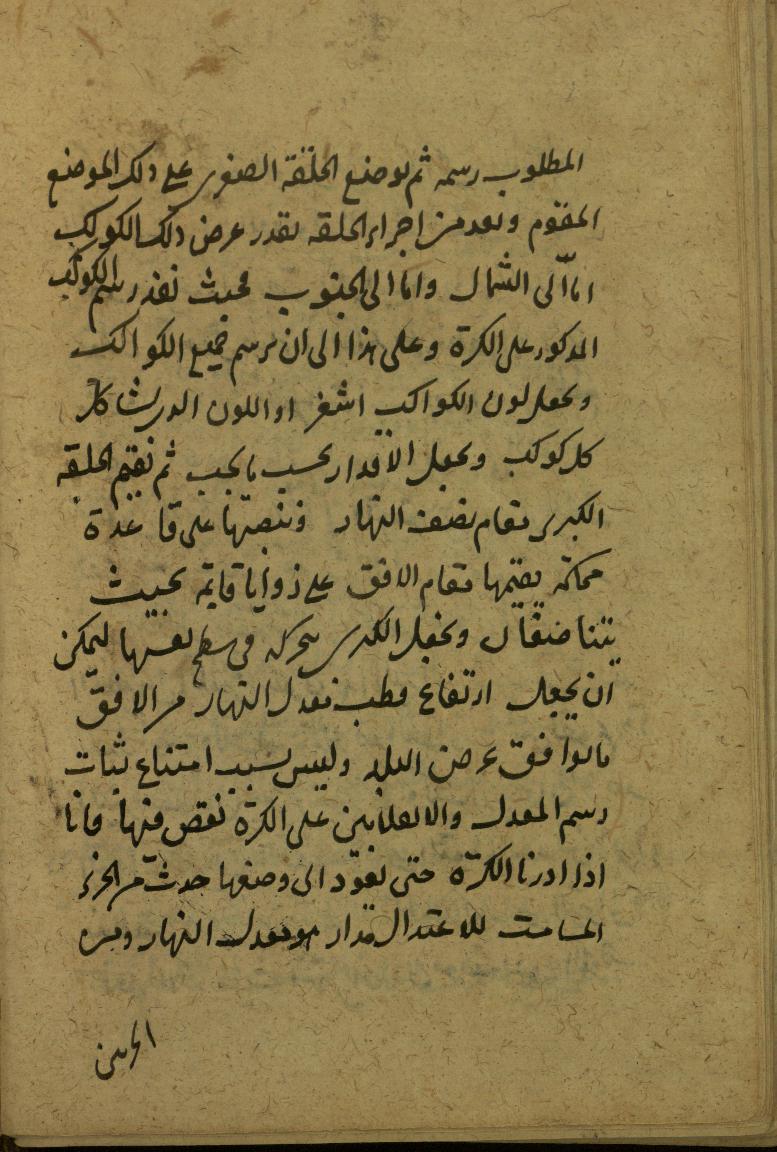 المطلوب رسمه ثم توضع الحلقة الصغرى على ذلك الموضع
المقوم وبعد من اجزاء الحلقه بقدر عرض ذلك الكوكب
اما الى الشمال واما الى الجنوب فحيث نفد رسم الكوكب
المذكور على الكرة وعلى هذا الى ان نرسم جميع الكواكب
ونجعل لون الكواكب اشقر او اللون الذى يشاكل
كل كوكب ونجعل الاقدار بحسب ما يجب ثم نقيم الحلقه
الكبرى مقام نصف النهار وننصبها على قاعدة
محكمه نقيمها مقام الافق على زوايا قايمه بحيث
يتناصفان ونجعل الكبرى متحركه فى سطح نفسها ليمكن
ان نجعل ارتفاع قطب معدل النهار من الافق
ما يوافق عرض البلد وليس بسبب امتناع ثبات
رسم المعدل والانقلابين على الكرة نقص فيها فانا
اذا ادرنا الكرة حتى تعود الى وضعها حدث من الجزء
المسامت للاعتدال مدار هو معدل النهار ومن